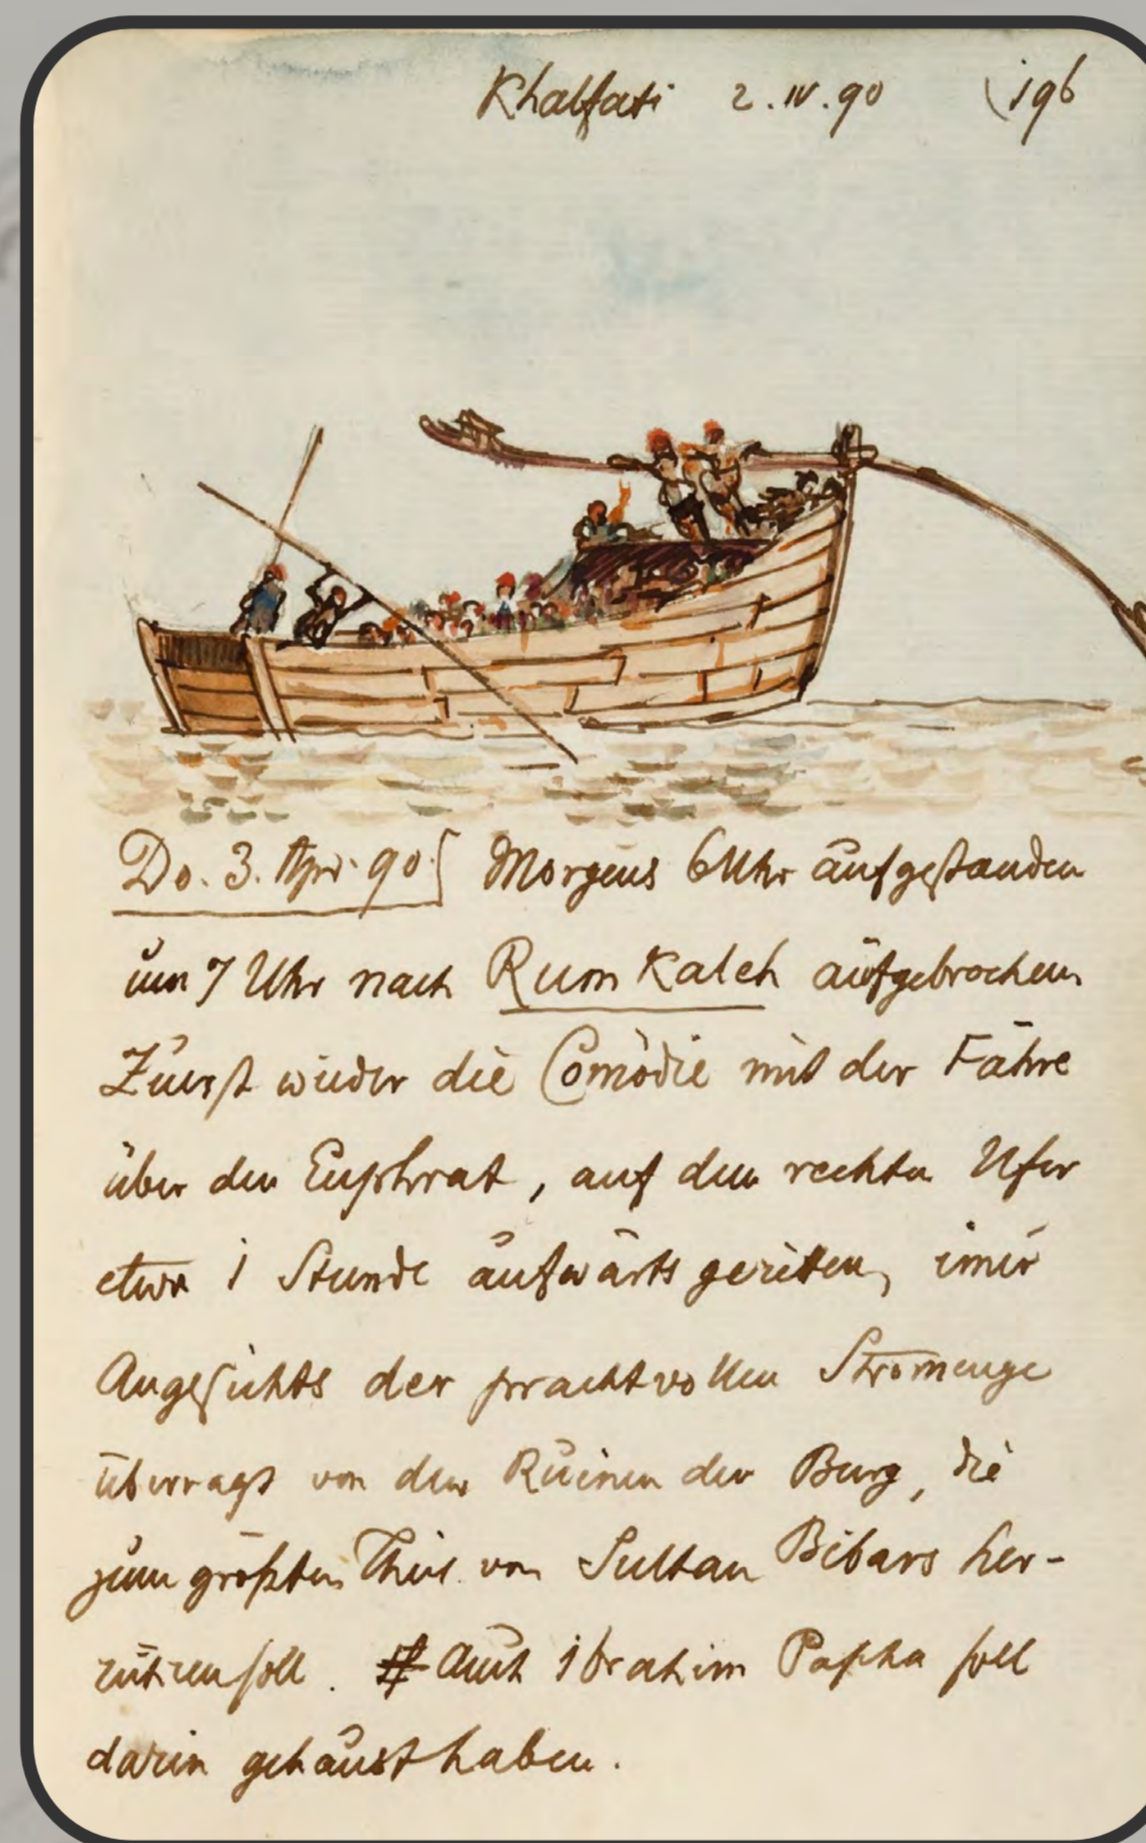 Khalfati 2.IV.90 (196
Do. 3. Apr. 90. Morgens 6 Uhr aufgestanden
um 7 Uhr nach Rum Kaleh aufgebrochen.
Zuerst wieder die Comödie mit der Fähre
über den Euphrat, auf dem rechten Ufer
etwa 1 Stunde aufwärts geritten, im̄er
Angesichts der prachtvollen Strom̄enge
überragt von den Ruinen der Burg, die
zum größten Theil von Sultan Bibars her-
rühren soll. Auch Ibrahim Pascha soll
darin gehaust haben.